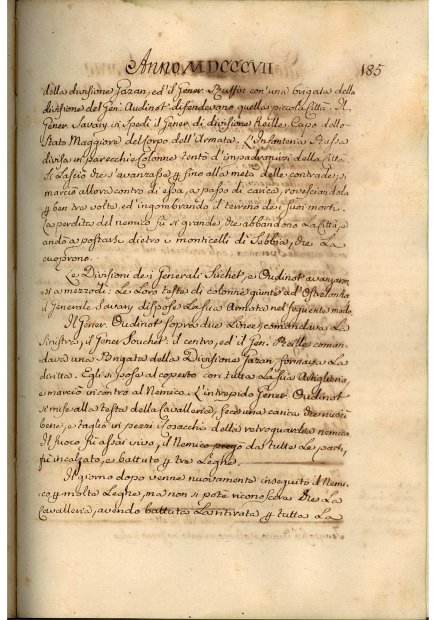 Anno MDCCCVII 185
della divisione Gazan, ed'il Gener. Ruffin con'una brigata della
divisione del Gen. Oudinot difendevano quella piccola Città. Il
Gener. Savary vi spedì il Gener. di divisione Reille, Capo dello
Stato Maggiore del corpo dell'Armata. L'Infanteria Russa
divisa in parecchie colonne tentò d'impadronirsi della Città.
Si lasciò che s'avanzasse fino alla metà delle contrade; si
marciò allora contro di essa, a passo di carica, rovesciandola
ben tre volte, ed'ingombrando il terreno de suoi morti.
La perdita del nemico fù sì grande, che abbandonò la Città, e
andò a postarsi dietro i monticelli di Sabbia, che la
coprono.
Le Divisioni dei Generali Suchet, e Oudinot avanzaron
si a mezzodì. Le Loro teste di colonne giunte ad'Ostrolenka
il Generale Savary dispose la sua Armata nel seguente modo.
Il Gener. Oudinot sopra due Linee, comandava la
sinistra, il Gener. Souchet il centro, ed'il Gen. Reille coman
dava una Brigata della Divisione Gazan, formava la
diritta. Egli si pose al coperto con tutta la sua Artiglieria,
e marciò incontro al Nemico. L'intrepido Gener. Oudinot
si mise alla testa della Cavalleria, fece una carica che riuscì
bene, e tagliò in pezzi i Cosacchi della retroguardia nemica.
Il fuoco fù assai vivo, il Nemico piegò da tutte le parti,
fù incalzato, e battuto tre Leghe.
Il giorno dopo venne nuovamente inseguito il Nemi-
co molte Leghe, ma non si potè riconoscere che la
Cavalleria, avendo battuta la ritirata tutta la